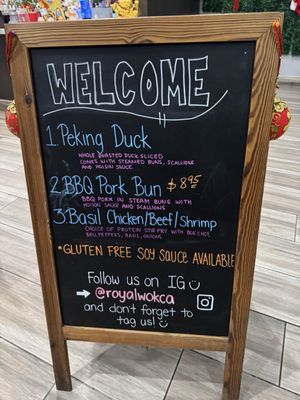 WELCOME
1. Peking Duck
WHOLE ROASTED DUCK SLICED
COMES WITH STEAMED BUNS, SCALLIONS
AND HOISIN SAUCE.
2. BBQ Pork Bun $8.95
BBQ PORK IN STEAM BUNS WITH
HOISIN SAUCE AND SCALLIONS
3. Basil Chicken/Beef/shrimp
CHOICE OF PROTEIN STIR FRY WITH BOK CHOY,
BELL PEPPERS, BASIL, ONIONS
*GLUTEN FREE SOY SAUCE AVAILABLE
Follow us on IG
@royalwokca
and don't forget to
tag us!